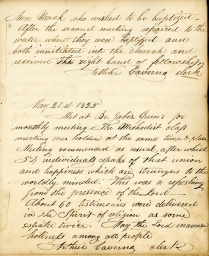 who wished to be baptized.
After the second meeting repaired to the
water when they were baptized and
both admitted into the Church and
received the right hand of fellowship
Arthur Caverno Clerk
May 28th 1825
Met at Br. Jaber Guin's for
monthly meeting. The Methodist class
meeting was holden at the same time & place
Meeting commenced as usual, after which
54 individuals spake of that union
and happiness which are strangers to the
worldly minded. This was a refreshing
from the presence of the Lord.
About 60 testimonies were delivered
in the Spirit of religion as some
spake twice. May the Lord increase
holiness among all people
Arthur Caverno Clerk